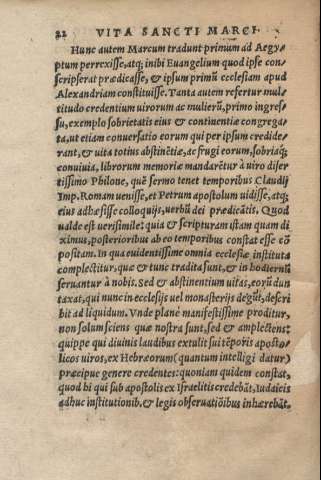 22 VITA SANCTI MARCI
Hunc autem Marcum tradunt primum ad Aegy⸗
ptum perrexisse, atq; inibi Euangelium quod ipse con⸗
scripserat prædicasse, & ipsum primũ ecclesiam apud
Alexandriam constituisse. Tanta autem refertur mul⸗
titudo credentium uirorum ac mulierũ, primo ingres⸗
su, exemplo sobrietatis eius & continentiæ congrega⸗
ta, ut etiam conuersatio eorum qui per ipsum credide⸗
rant, & uita totius abstinẽtiæ, ac frugi eorum, sobriaq́;
conuiuia, librorum memoriæ mandarẽtur à uiro diser
tissimo Philone, quẽ sermo tenet temporibus Claudij
Imp. Romam uenisse, et Petrum apostolum uidisse, atq;
eius adhæsisse colloquijs, uerbũ dei prædicãtis. Quod
ualde est uerisimile: quia & scripturam istam quam di
ximus, posterioribus ab eo temporibus constat esse cõ
positam. In qua euidentissime omnia ecclesiæ instituta
complectitur, quæ & tunc tradita sunt, & in hodiernũ
seruantur à nobis. Sed & abstinentium uitas, eorũ dun
taxat, qui nunc in ecclesijs uel monasterijs degũt, descri
bit ad liquidum. Vnde plane manifestissime proditur,
non solum sciens quæ nostra sunt, sed & amplectens:
quippe qui diuinis laudibus extulit sui tẽporis aposto⸗
licos uiros, ex Hebræorum (quantum intelligi datur)
præcipue genere credentes: quoniam quidem constat,
quod hi qui sub apostolis ex Israelitis credebãt, Iudaicis
adhuc institutionib. & legis obseruatiõibus inhærebãt,